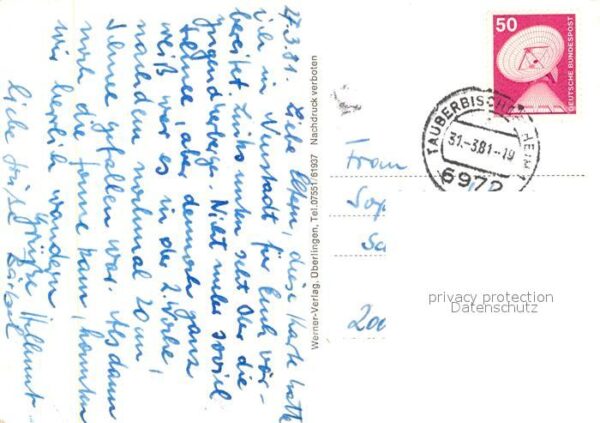 17.3.81. Liebe Eltern, diese Karte hatte
ich in Neustadt für Euch vor-
bereitet. Links unten seht Ihr die
Jugendherberge. Nicht mehr soviel
Schnee, aber dennoch ganz
weiß war es in der 2. Woche,
nachdem nochmal 20 cm
Schnee gefallen war. Als dann
noch die Sonne kam, konnten
wir herrlich wandern.
Liebe Grüße
50
DEUTSCHE BUNDESPOST
TAUBERBISCHOFSHEIM
31.-3.81-19
6972
Frau
Werner-Verlag, Überlingen, Tel. 07551/61937 Nachdruck verboten
privacy protection
Datenschutz